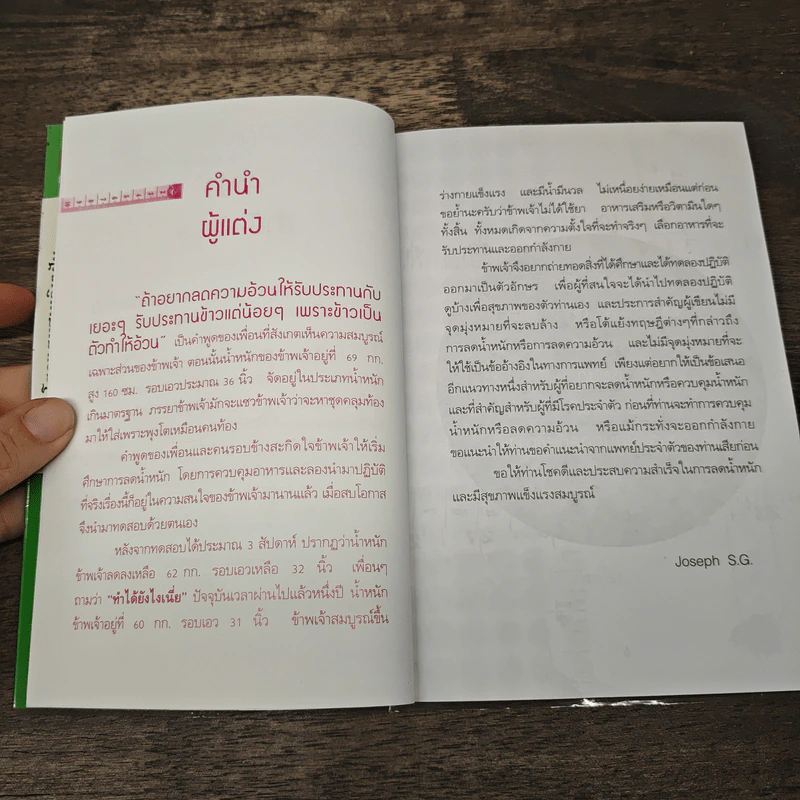 คำนำ
ผู้แต่ง
"ถ้าอยากลดความอ้วนให้รับประทานกับ
เยอะๆ รับประทานข้าวแต่น้อยๆ เพราะข้าวเป็น
ตัวทำให้อ้วน" เป็นคำพูดของเพื่อนที่สังเกตเห็นความสมบูรณ์
เฉพาะส่วนของข้าพเจ้า ตอนนั้นน้ำหนักของข้าพเจ้าอยู่ที่ 69 กก.
สูง 160 ซม. รอบเอวประมาณ 36 นิ้ว จัดอยู่ในประเภทน้ำหนัก
เกินมาตรฐาน ภรรยาข้าพเจ้ามักจะแซวข้าพเจ้าว่าจะหาชุดคลุมท้อง
มาให้ใส่เพราะพุงโตเหมือนคนท้อง
คำพูดของเพื่อนและคนรอบข้างสะกิดใจข้าพเจ้าให้เริ่ม
ศึกษาการลดน้ำหนัก โดยการควบคุมอาหารและลองนำมาปฏิบัติ
ที่จริงเรื่องนี้ก็อยู่ในความสนใจของข้าพเจ้ามานานแล้ว เมื่อสบโอกาส
จึงนำมาทดสอบด้วยตนเอง
หลังจากทดสอบได้ประมาณ 3 สัปดาห์ ปรากฏว่าน้ำหนัก
ข้าพเจ้าลดลงเหลือ 62 กก. รอบเอวเหลือ 32 นิ้ว เพื่อนๆ
ถามว่า "ทำได้ยังไงเนี่ย" ปัจจุบันเวลาผ่านไปแล้วหนึ่งปี น้ำหนัก
ข้าพเจ้าอยู่ที่ 60 กก. รอบเอว 31 นิ้ว ข้าพเจ้าสมบูรณ์ขึ้น
ร่างกายแข็งแรง และมีน้ำมีนวล ไม่เหนื่อยง่ายเหมือนแต่ก่อน
ขอย้ำนะครับว่าข้าพเจ้าไม่ได้ใช้ยา อาหารเสริมหรือวิตามินใดๆ
ทั้งสิ้น ทั้งหมดเกิดจากความตั้งใจที่จะทำจริงๆ เลือกอาหารที่จะ
รับประทานและออกกำลังกาย
ข้าพเจ้าจึงอยากถ่ายทอดสิ่งที่ได้ศึกษาและได้ทดลองปฏิบัติ
ออกมาเป็นตัวอักษร เพื่อผู้ที่สนใจจะได้นำไปทดลองปฏิบัติ
ดูบ้างเพื่อสุขภาพของตัวท่านเอง และประการสำคัญผู้เขียนไม่มี
จุดมุ่งหมายที่จะลบล้าง หรือโต้แย้งทฤษฎีต่างๆที่กล่าวถึง
การลดน้ำหนักหรือการลดความอ้วน และไม่มีจุดมุ่งหมายที่จะ
ให้ใช้เป็นข้ออ้างอิงในทางการแพทย์ เพียงแต่อยากให้เป็นข้อเสนอ
อีกแนวทางหนึ่งสำหรับผู้ที่อยากจะลดน้ำหนักหรือควบคุมน้ำหนัก
และที่สำคัญสำหรับผู้ที่มีโรคประจำตัว ก่อนที่ท่านจะทำการควบคุม
น้ำหนักหรือลดความอ้วน หรือแม้กระทั่งจะออกกำลังกาย
ขอแนะนำให้ท่านขอคำแนะนำจากแพทย์ประจำตัวของท่านเสียก่อน
ขอให้ท่านโชคดีและประสบความสำเร็จในการลดน้ำหนัก
และมีสุขภาพแข็งแรงสมบูรณ์
Joseph S.G.